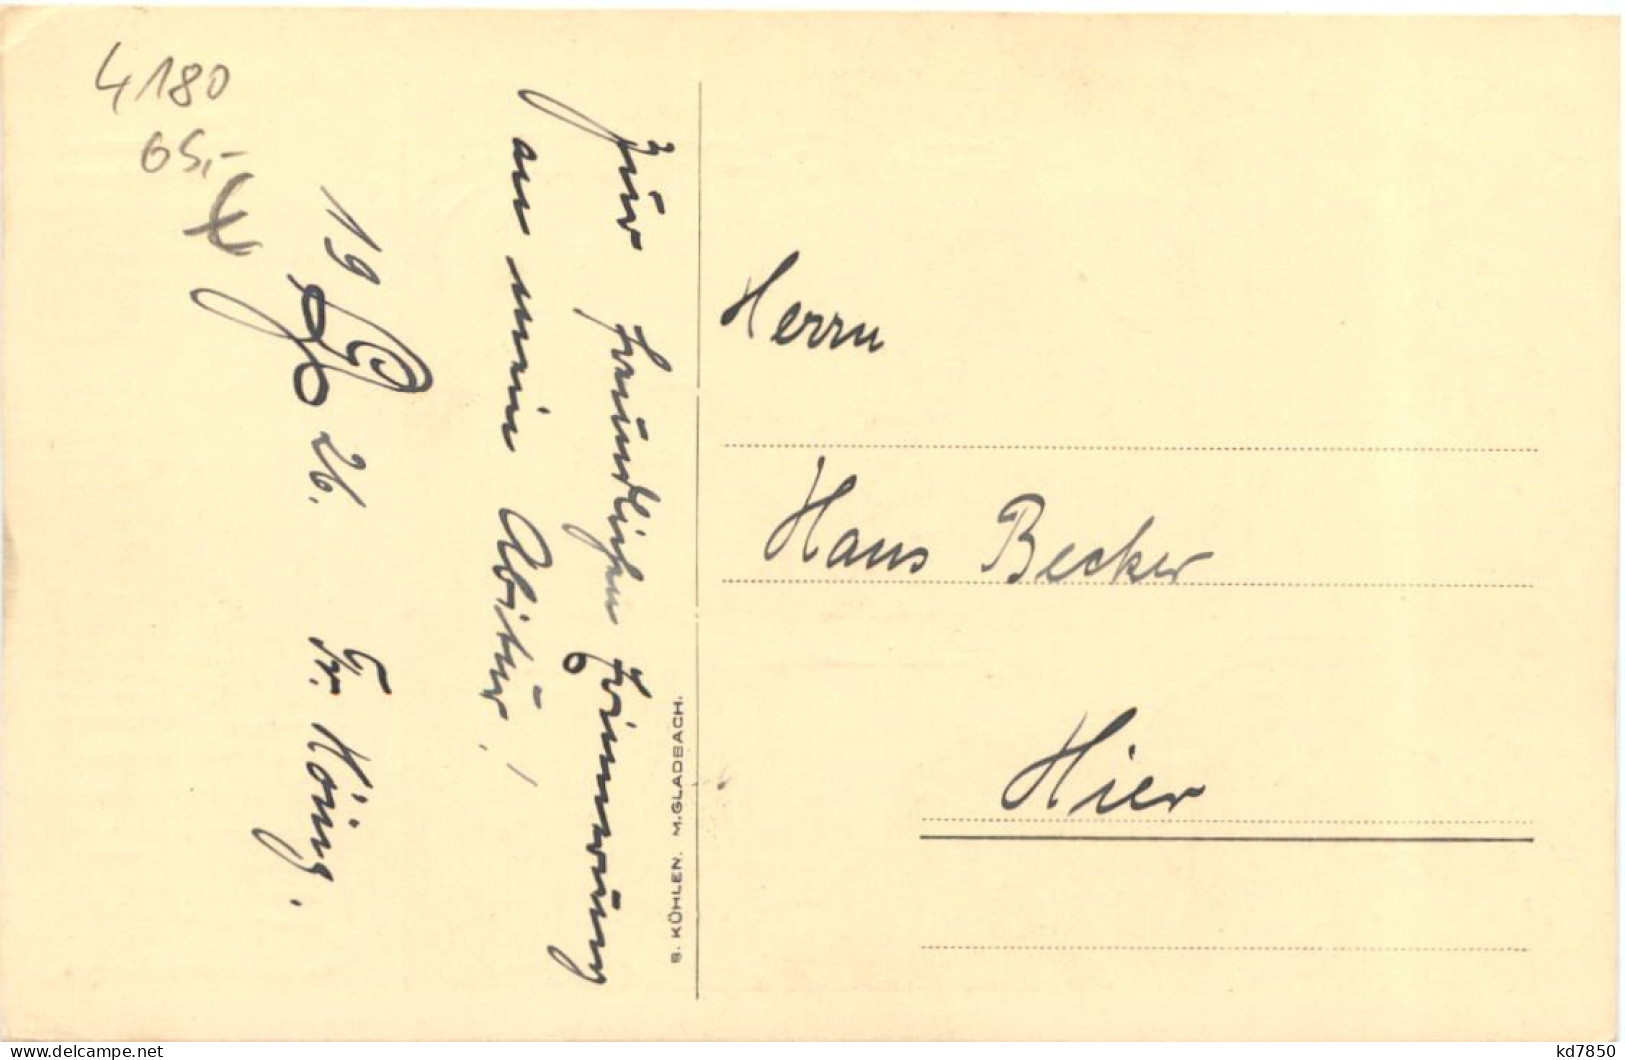 4180
65,-
Zur freundlichen Erinnerung
an mein Abitur!
19 26. Fr. König.
S. KÜHLEN. M.GLADBACH.
Herrn
Hans Becker
Hier
www.delcampe.net
kd7850